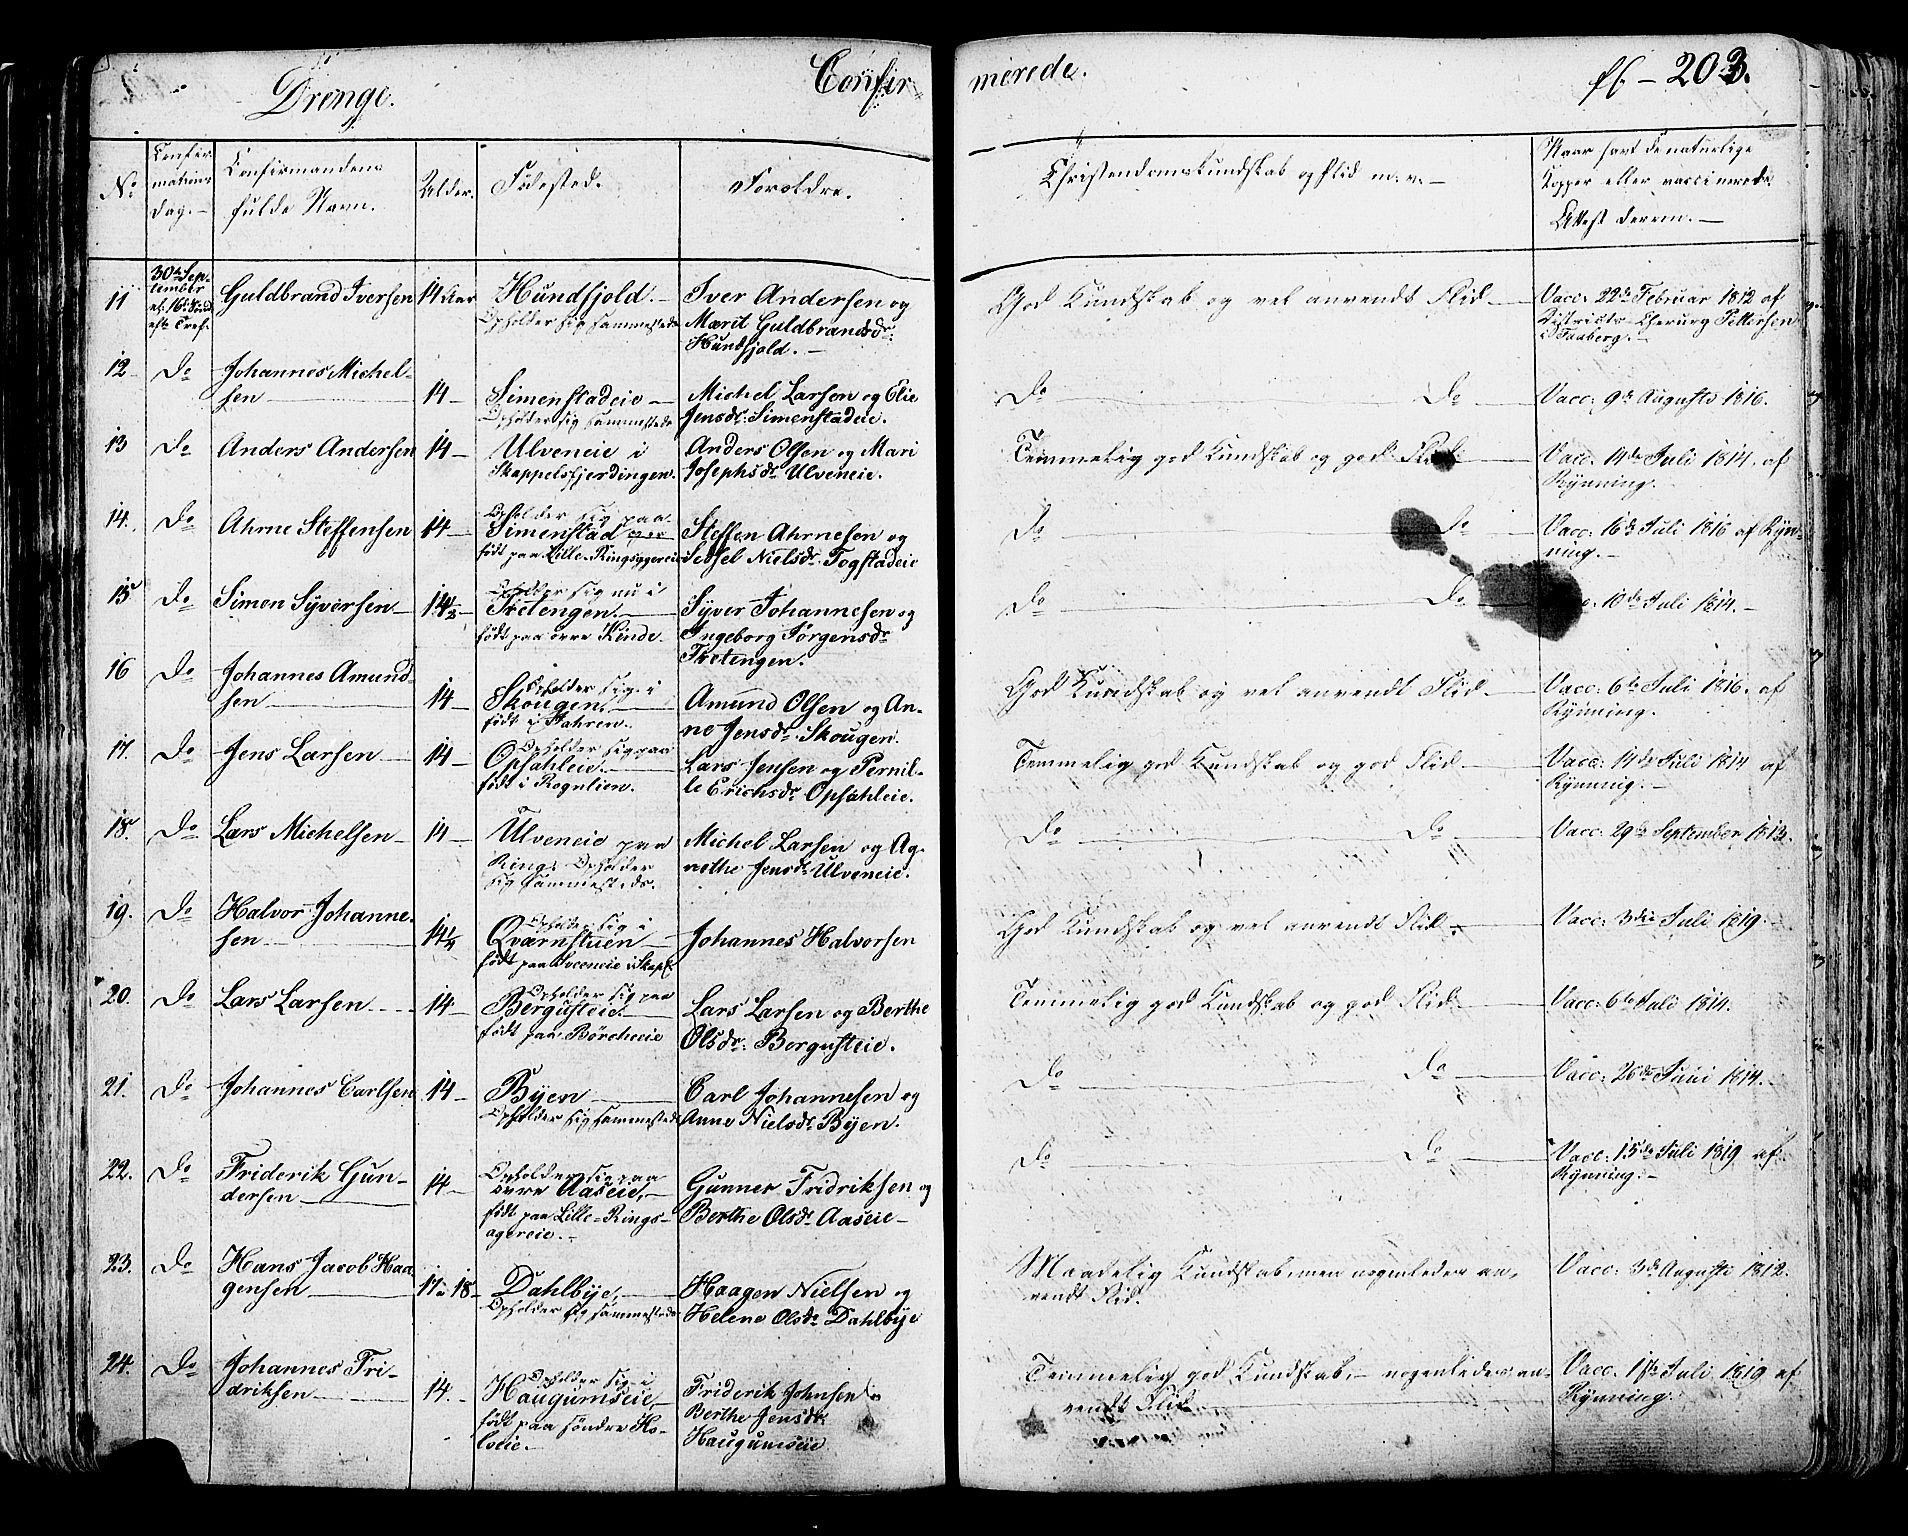 Drenge.
Confir-
merede.
fl - 203.
No
Confir
mations
Dag.
Confirmandens
fulde Navn.
Alder.
Fødested.
Forældre.
Christendomskundskab og Flid m. v. -
Naar havt de naturlige
Kopper eller vaccinerede.
Attest derom. -
11
30te Sep-
tember
Guldbrand Iversen
14 Aar
Hundfjold. -
Opholder sig sammesteds
Iver Andersen og
Marit Guldbrandsdr
Hundfjold. -
God Kundskab og vel anvendt Flid -
Vacc: 22de Februar 1812 af
Districts-Cherurg Pettersen
i Faaberg. -
12
Do
Johannes Michel-
sen
14 -
Simenstadeie -
Opholder sig sammesteds
Michel Larsen og Elie
Jensdr: Simenstadeie.
Do
Do
Vacc: 9de Augusto 1816.
13
Do
Anders Andersen
14 -
Ulveneie i
Skappelsfjerdingen.
Anders Olsen og Mari
Josephsdr Ulveneie.
Temmelig god Kundskab og god Flid
Vacc. 14de Juli 1814. af
Rynning.
14.
Do
Ahrne Steffensen
14 -
Opholder sig paa
Simenstad og er
født paa Lille-Ringsagereie
Steffen Ahrnesen og
Sedsel Nielsdr. Fogstadeie
Do
Do
Vacc: 16de Juli 1816 af Ryn-
ning. -
15
Do
Simen Syversen
14½ -
Opholder sig nu i
Tretengen
født paa øvre Kinde.
Syver Johannesen og
Ingeborg Jørgensdr
Tretengen.
Do
Do
10de Juli 1814. -
16
Do
Johannes Amund-
sen
14 -
Opholder sig i
Skougen,
født i Fahren.
Amund Olsen og An-
ne Jensdr. Skougen.
God Kundskab og vel anvendt Flid. -
Vacc: 6te Juli 1816. af
Rynning.
17.
Do
Jens Larsen
14 -
Opholder sig paa
Opsahleie.
født i Rognlien.
Lars Jensen og Pernil-
le Erichsdr Opsahleie.
Temmelig god Kundskab og god Flid.
Vacc: 14de Juli 1814 af
Rynning. -
18.
Do
Lars Michelsen
14 -
Ulveneie paa
Rings. Opholder
sig sammesteds.
Michel Larsen og Ag-
nethe Jensdr Ulveneie.
Do
Do
Vacc: 29de September 1813.
19.
Do
Halvor Johanne-
sen
14½
Opholder sig i
Qværnstuen
født paa Sveeneie i Skapf.
Johannes Halvorsen
God Kundskab og vel anvendt Flid.
Vacc: 3die Juli 1819.
20.
Do
Lars Larsen
14 -
Opholder sig paa
Bergusteie.
født paa Børcheeie
Lars Larsen og Berthe
Olsdr: Bergusteie.
Temmelig god Kundskab og god Flid.
Vacc: 6te Juli 1814.
21.
Do
Johannes Carlsen
14 -
Byen
Opholder sig sammesteds
Carl Johannesen og
Anne Nielsdr Byen.
Do
Do
Vacc: 26de Juni 1814.
22.
Do
Friderik Gun-
dersen
14 -
Opholder sig paa
øvre Aaseie,
født paa Lille-Rings-
agereie. -
Gunner Fridriksen og
Berthe Olsdr Aaseie -
Do
Do
Vacc: 15de Juli 1819 af
Rynning. -
23.
Do
Hans Jacob Haa-
gensen
17 a 18 -
Dahlbye,
Opholder sig sammesteds
Haagen Nielsen og
Helene Olsdr Dahlbye
Maadelig Kundskab, men nogenledes an-
vendt Flid.
Vacc: 3die Augusti 1812.
24.
Do
Johannes Fri-
driksen
14. -
Opholder sig i
Haugumseie,
født paa søndre Ho-
loeie. -
Friderik Johnsen og
Berthe Jensdr
Haugumseie
Temmelig god Kundskab, - nogenledes an-
vendt Flid.
Vacc. 1ste Juli 1819 af
Rynning.